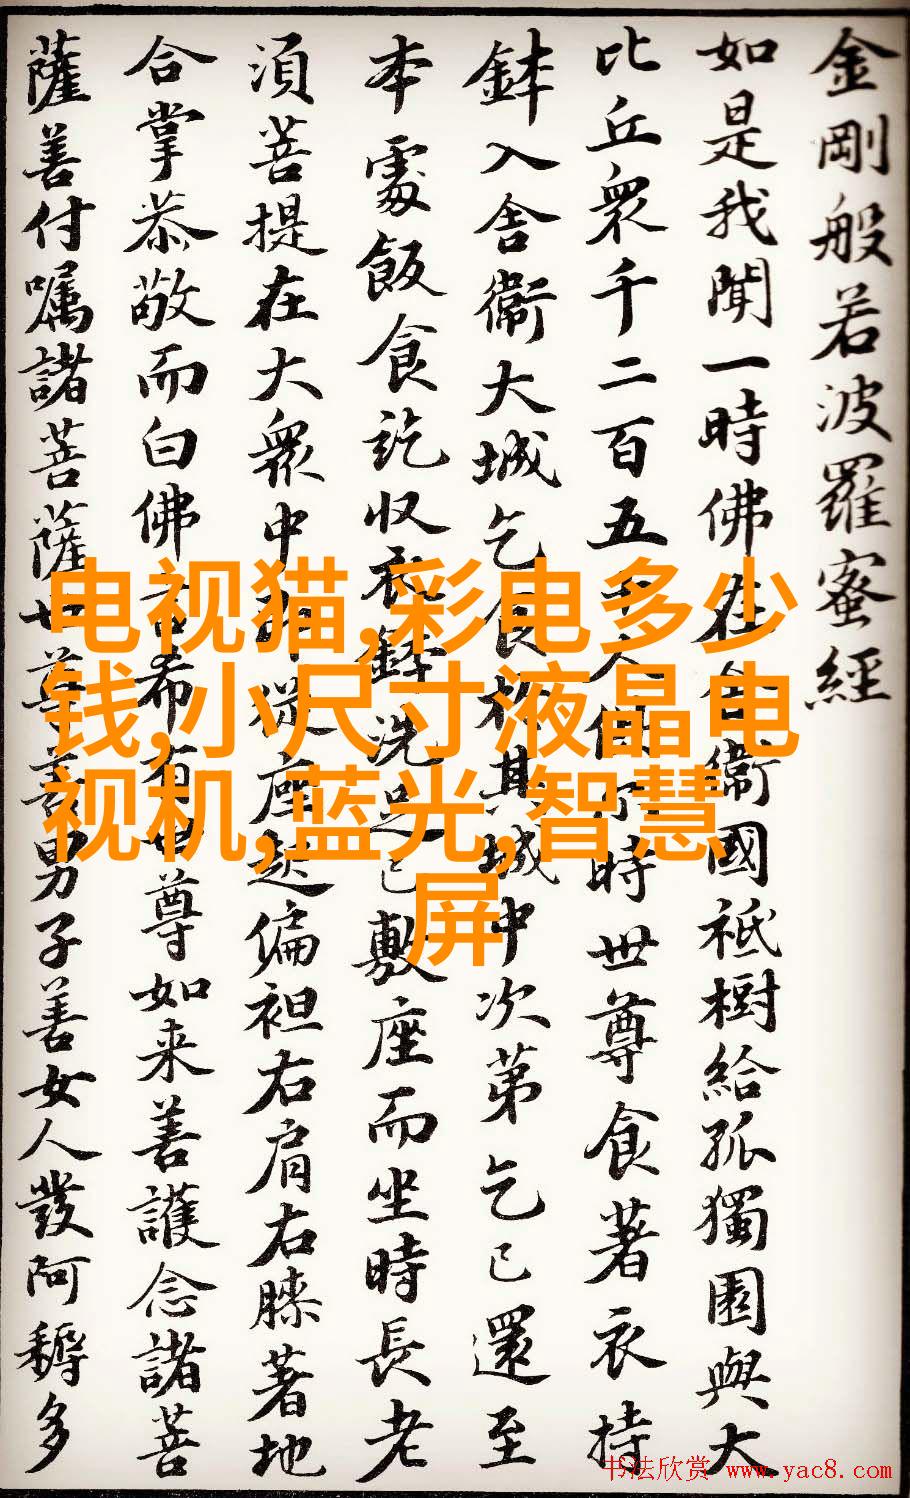 金剛般若波羅蜜經
如是我聞一時佛在舍衞國祇樹給孤獨園與大
比丘衆千二百五十人俱尒時世尊食著衣持
鉢入舍衞大城乞食於其城中次第乞已還至
本處飯食訖収衣鉢洗足已敷座而坐時長老
湏菩提在大衆中即從座起偏袒右肩右膝著地
合掌恭敬而白佛言希有世尊如来善護念諸菩
薩善付嘱諸菩薩世尊善男子善女人發阿耨多
电视猫,彩电多少
钱,小尺寸液晶电
视机,蓝光,智慧
屏
书法欣赏 www.yac8.com